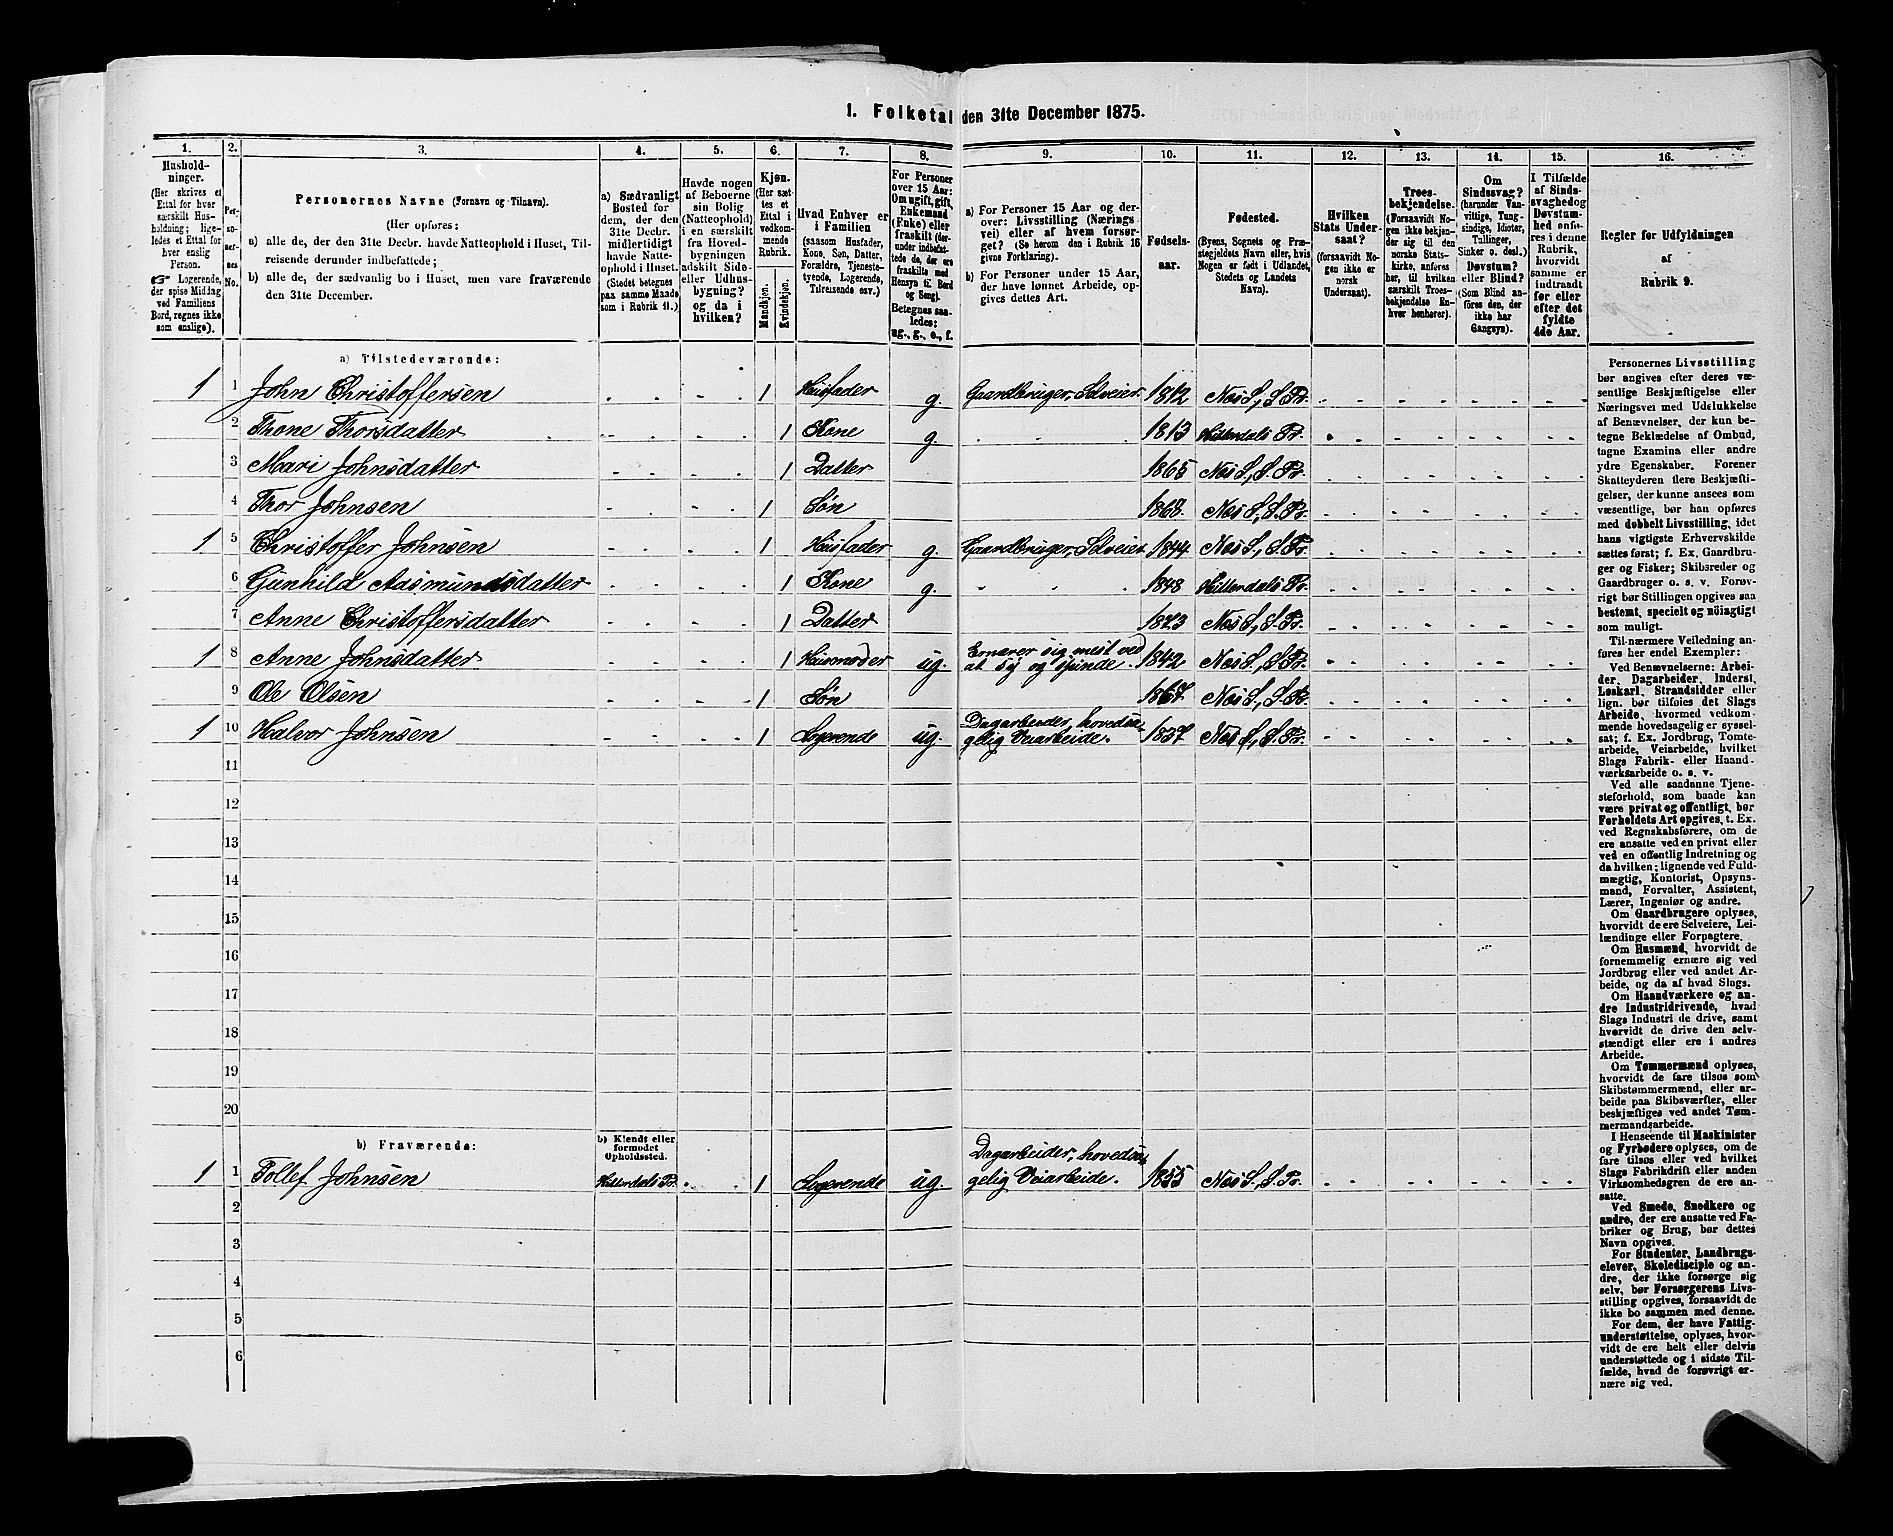 1. Folketal den 31te December 1875.
1. 2. 3. 4. 5. 6. 7. 8. 9. 10. 11. 12. 13. 14. 15. 16.
Hushold-
ninger.
(Her skrives et
Ettal for hver
særskilt Hus-
holdning; lige-
ledes et Ettal for
hver enslig
Person.
☞ Logerende,
der spise Middag
ved Familiens
Bord, regnes ikke
som enslige).
Per-
so-
ner-
nes
No.
Personernes Navne (Fornavn og Tilnavn).
(Her opføres:
a) alle de, der den 31te Decbr. havde Natteophold i Huset, Til-
reisende derunder indbefattede;
b) alle de, der sædvanlig bo i Huset, men vare fraværende
den 31te December.
a) Sædvanligt
Bosted for
dem, der den
31te Decbr.
midlertidigt
havde Natte-
ophold i Huset.
(Stedet betegnes
paa samme Maade
som i Rubrik 11.)
Havde nogen
af Beboerne
sin Bolig
(Natteophold)
i en særskilt
fra Hoved-
bygningen
adskilt Side-
eller Udhus-
bygning?
og da i
hvilken?
Kjøn.
(Her sæt-
tes et
Ettal i
vedkom-
mende
Rubrik.
Mandkjøn.
Kvindekjøn.
Hvad Enhver er
i Familien
(saasom Husfader,
Kone, Søn, Datter,
Forældre, Tjeneste-
tyende, Logerende,
Tilreisende osv.)
For Personer
over 15 Aar:
Om ugift, gift,
Enkemand
(Enke) eller
fraskilt (der-
under indbefat-
tede de, der ere
fraskilte med
Hensyn til Bord
og Seng).
Betegnes saa-
ledes:
ug., g., e., f.
a) For Personer 15 Aar og der-
over: Livsstilling (Nærings
vei) eller af hvem forsør-
get? (Se herom den i Rubrik 16
givne Forklaring).
b) For Personer under 15 Aar,
der have lønnet Arbeide, op-
gives dettes Art.
Fødsels-
aar.
Fødested.
(Byens, Sognets og Præ-
stegjeldets Navn, eller, hvis
Nogen er født i Udlandet,
Stedets og Landets
Navn).
Hvilken
Stats Under-
saat?
(forsaavidt No-
gen ikke er
norsk
Undersaat).
Troes-
bekjendelse.
(Forsaavidt No-
gen ikke bekjen-
der sig til den
norske Stats-
kirke, anføres
her, til hvilken
særskilt Troes-
bekjendelse En-
hver henhører).
Om
Sindssvag?
(herunder Van-
vittige, Tung-
sindige, Idioter,
Tullinger,
Sinker o. desl.).
Døvstum?
eller Blind?
(Som Blind an-
føres den, der
ikke har
Gangsyn).
I Tilfælde
af Sinds-
svaghed og
Døvstum-
hed anfø-
res i denne
Rubrik,
hvorvidt
samme er
indtraadt
før eller
efter det
fyldte
4de Aar.
Regler for Udfyldningen
af
Rubrik 9.
a) Tilstedeværende:
1 1 John Christoffersen 1 Husfader g Gaardbruger, Selveier 1812 Nes S., S. Pr.
2 Thone Thorsdatter 1 Kone g 1813 Hitterdals Pr.
3 Mari Johnsdatter 1 Datter 1865 Nes S., S. Pr.
4 Thor Johnsen 1 Søn 1868 Nes S., S. Pr.
1 5 Christoffer Johnsen 1 Husfader g Gaardbruger, Selveier 1844 Nes S., S. Pr.
6 Gunhild Aasmundsdatter 1 Kone g. 1848 Hitterdals Pr.
7 Anne Christoffersdatter 1 Datter 1873 Nes S., S. Pr.
1 8 Anne Johnsdatter 1 Husmoder ug. Ernærer sig mest ved
at sy og spinde. 1842 Nes S., S. Pr.
9 Ole Olsen 1 Søn 1867 Nes S., S. Pr.
1 10 Halvor Johnsen 1 Logerende ug. Dagarbeider, hovedsa-
gelig Veiarbeide. 1837 Nes S., S. Pr.
11
12
13
14
15
16
17
18
19
20
b) Fraværende:
b) Kjendt eller
formodet
Opholdssted.
1 1 Tollef Johnsen Hitterdals Pr. 1 Logerende ug. Dagarbeider, hovedsa-
gelig Veiarbeide. 1855 Nes S., S. Pr.
2
3
4
5
6
Personernes Livsstilling
bør angives efter deres væ-
sentlige Beskjæftigelse eller
Næringsvei med Udelukkelse
af Benævnelser, der kun be-
tegne Beklædelse af Ombud,
tagne Examina eller andre
ydre Egenskaber. Forener
Skatteyderen flere Beskjæfti-
gelser, der kunne ansees som
væsentlige, bør han opføres
med dobbelt Livsstilling, idet
hans vigtigste Erhvervskilde
sættes først; f. Ex. Gaardbru-
ger og Fisker; Skibsreder og
Gaardbruger o. s. v. Forøv-
rigt bør Stillingen opgives saa
bestemt, specielt og nøiagtigt
som muligt.
Til nærmere Veiledning an-
føres her endel Exempler:
Ved Benævnelserne: Arbei-
der, Dagarbeider, Inderst,
Løskarl, Strandsidder eller
lign. bør tilføies det Slags
Arbeide, hvormed vedkom-
mende hovedsagelig er syssel-
sat; f. Ex. Jordbrug, Tomte-
arbeide, Veiarbeide, hvilket
Slags Fabrik- eller Haand-
værksarbeide o. s. v.
Ved alle saadanne Tjene-
steforhold, som baade kan
være privat og offentligt, bør
Forholdets Art opgives, t. Ex.
ved Regnskabsførere, om de
ere ansatte ved en privat eller
ved en offentlig Indretning og
da hvilken; lignende ved Fuld-
mægtig, Kontorist, Opsyns-
mand, Forvalter, Assistent,
Lærer, Ingeniør og andre.
Om Gaardbrugere oplyses,
hvorvidt de ere Selveiere, Lei-
lændinge eller Forpagtere.
Om Husmænd, hvorvidt de
fornemmelig ernære sig ved
Jordbrug eller ved andet Ar-
beide, og da af hvad Slags.
Om Haandværkere og an-
dre Industridrivende, hvad
Slags Industri de drive, samt
hvorvidt de drive den selv-
stændigt eller ere i andres
Arbeide.
Om Tømmermænd oplyses,
hvorvidt de fare tilsøs som
Skibstømmermænd, eller ar-
beide paa Skibsværfter, eller
beskjæftiges ved andet Tøm-
mermandsarbeide.
I Henseende til Maskinister
og Fyrbødere oplyses, om de
fare tilsøs eller ved hvilket
Slags Fabrikdrift eller anden
Virksomhedsgren de ere an-
satte.
Ved Smede, Snedkere og
andre, der ere ansatte ved Fa-
briker og Brug, bør dettes
Navn opgives.
For Studenter, Landbrugs-
elever, Skoledisciple og an-
dre, der ikke forsørge sig
selv, bør Forsørgerens Livs-
stilling opgives, forsaavidt de
ikke bo sammen med denne.
For dem, der have Fattig-
understøttelse, oplyses, hvor-
vidt de ere helt eller delvis
understøttede og i sidste Til-
fælde, hvad de forøvrigt er-
nære sig ved.